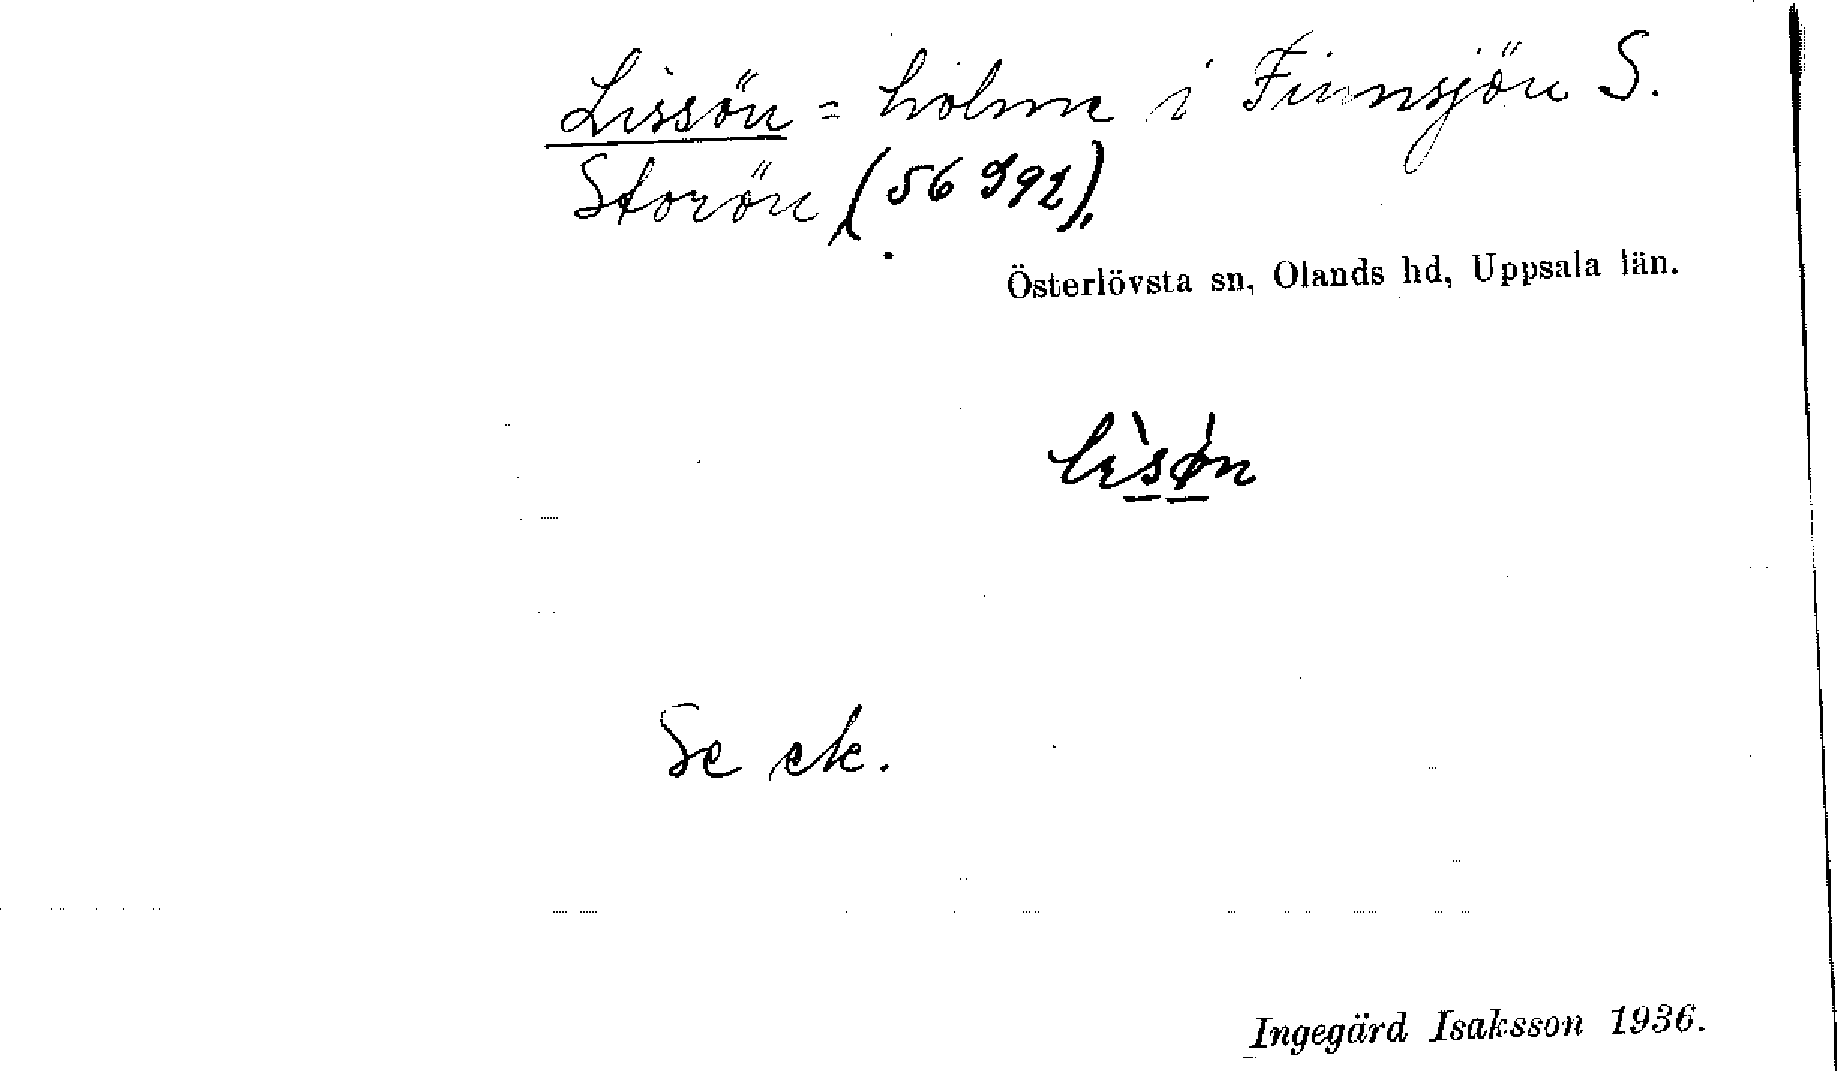 Lissön = holme i Finnsjön S.
Storön (56 992).
Österlövsta sn, Olands hd, Uppsala län.
lìsø̀n
Se ek.
Ingegärd Isaksson 1936.